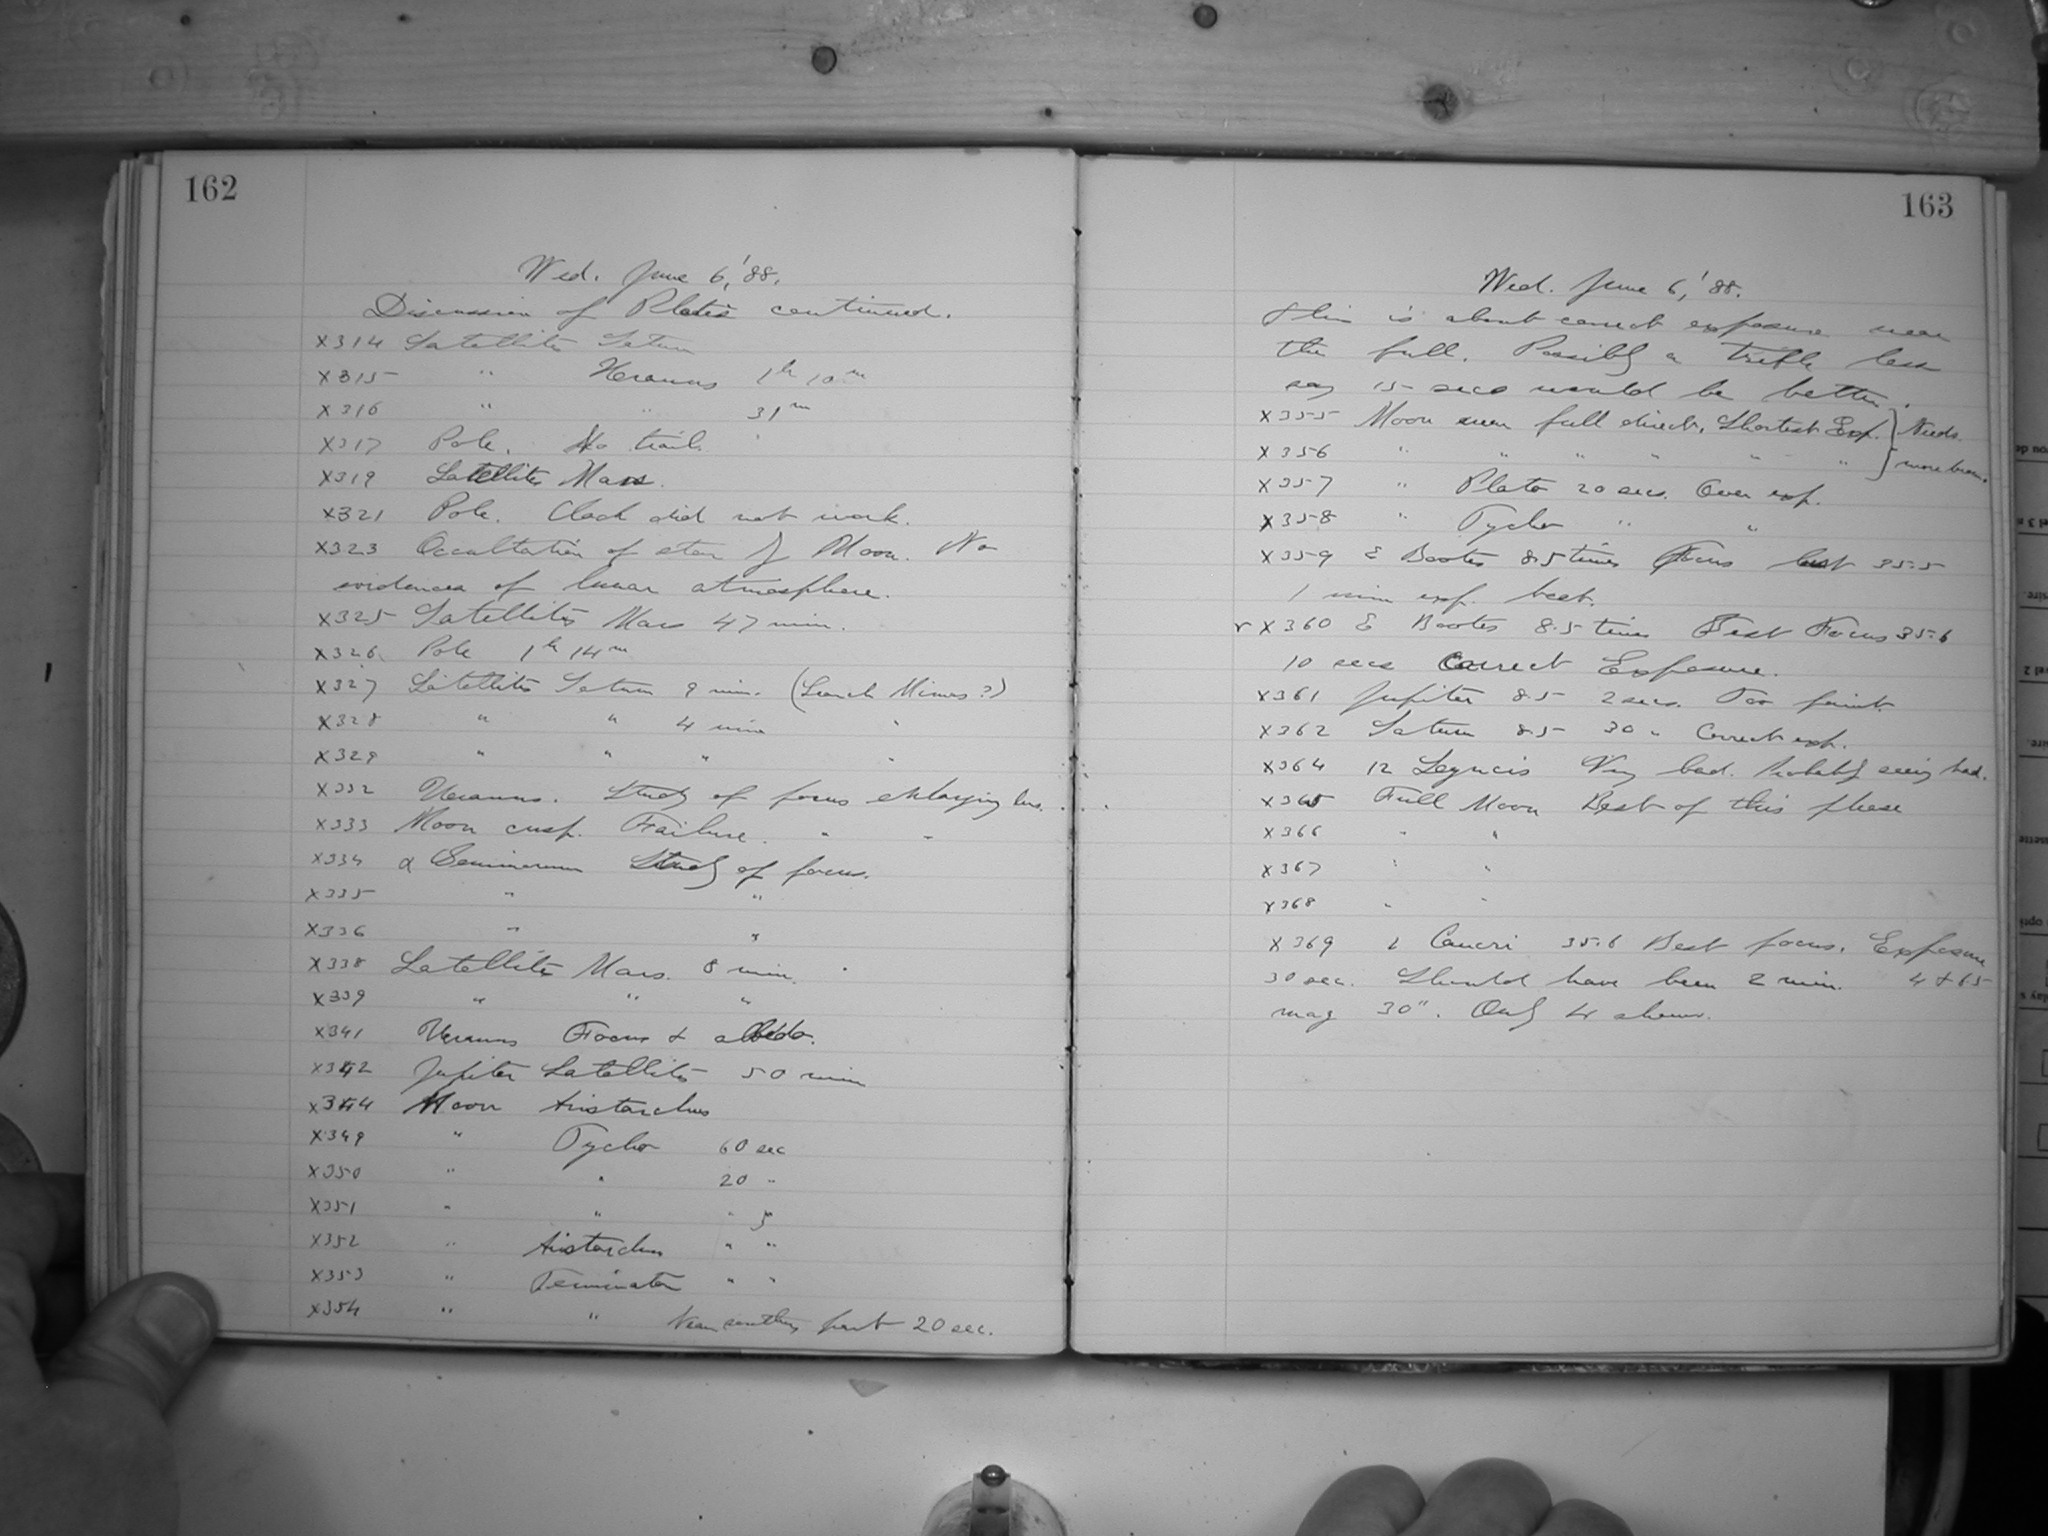 162
Wed. June 6, '88.
Discussion of Plates continued.
X314 Satellites Saturn
X315 " Uranus 1h 10m
X316 " " 31m
X317 Pole. No trail.
X319 Satellites Mars.
X321 Pole. Clock did not work.
X323 Occultation of star by Moon. No
evidences of lunar atmosphere.
X325 Satellites Mars 47 min.
X326 Pole 1h 14m
X327 Satellites Saturn 9 min. (Search Mimas?)
X328 " " 4 min "
X329 " " " "
X332 Uranus. Study of focus enlarging lens.
X333 Moon cusp. Failure. " "
X334 α Geminorum Study of focus.
X335 " "
X336 " "
X338 Satellites Mars. 8 min.
X339 " " "
X341 Uranus Focus & albedo.
X342 Jupiter Satellites 50 min
X344 Moon Aristarchus
X349 " Tycho 60 sec
X350 " " 20 "
X351 " " " "
X352 " Aristarchus " "
X353 " Terminator " "
X354 " " Near southern part 20 sec.
163
Wed. June 6, '88.
this is about correct exposure near
the full. Possibly a trifle less
say 15 secs would be better.
X355 Moon near full direct. Shortest Exp. } Needs
X356 " " " " " " } more
X357 " Plato 20 secs. Over exp.
X358 " Tycho " "
X359 ε Bootes 8.5 times Focus best 35.5
1 min exp. best.
X360 ε Bootes 8.5 times Best Focus 35.6
10 secs Correct Exposure.
X361 Jupiter 8.5 2 secs. Too faint.
X362 Saturn 8.5 30 " Correct exp.
X364 12 Lyncis Very bad. Probably seeing bad.
X365 Full Moon Best of this phase
X366 " "
X367 " "
X368 " "
X369 ι Cancri 35.6 Best focus. Exposure
30 sec. Should have been 2 min. 4 & 6.5
mag 30". Only 4 shows.